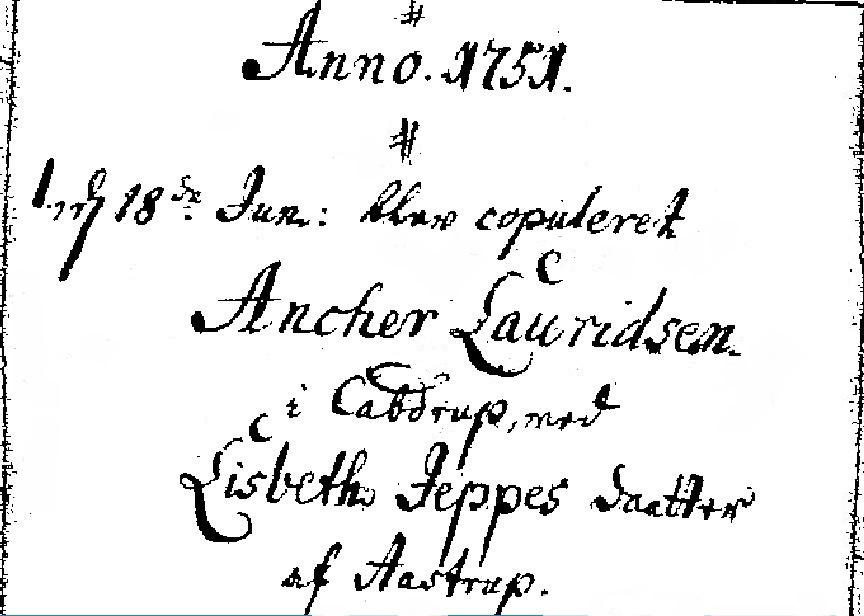 Anno. 1751.
18de Jun: blev copuleret
Ancher Lauridsen.
i Cabdrup, med
Lisbeth Jeppes daatter
af Aastrup.